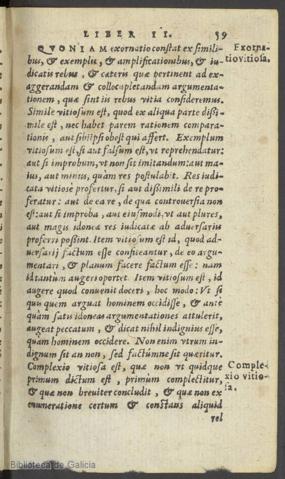 LIBER II. 59
QVONIAM exornatio constat ex simili-
bus, & exemplis, & amplificationibus, & iu-
dicatis rebus, & cæteris quæ pertinent ad ex-
aggerandam & collocupletandam argumenta-
tionem, quæ sint iis rebus vitia consideremus.
Simile vitiosum est, quod ex aliqua parte dissi-
mile est, nec habet parem rationem compara-
tionis, aut sibi ipsi obest qui affert. Exemplum
vitiosum est, si aut falsum est, vt reprehendatur:
aut si improbum, vt non sit imitandum: aut ma-
ius, aut minus, quàm res postulabit. Res iudi-
cata vitiosè profertur, si aut dissimili de re pro-
feratur: aut de ea re, de qua controuersia non
est: aut si improba, aut eiusmodi, vt aut plures,
aut magis idoneæ res iudicatæ ab aduersariis
proferri possint. Item vitiosum est id, quod ad-
uersarij factum esse confiteantur, de eo argu-
mentari, & planum facere factum esse: nam
id tantum augeri oportet. Item vitiosum est, id
augere quod conuenit doceri, hoc modo: Vt si
quis quem arguat hominem occidisse, & ante
quàm satis idoneas argumentationes attulerit,
augeat peccatum, & dicat nihil indignius esse,
quàm hominem occidere. Non enim vtrum in-
dignum sit an non, sed factúmne sit quæritur.
Complexio vitiosa est, quæ non vt quidque
primum dictum est, primùm complectitur,
& quæ non breuiter concludit, & quæ non ex
enumeratione certum & constans aliquid
rel
Exorna-
tio vitiosa.
Comple-
xio vitio-
sa.
Biblioteca de Galicia